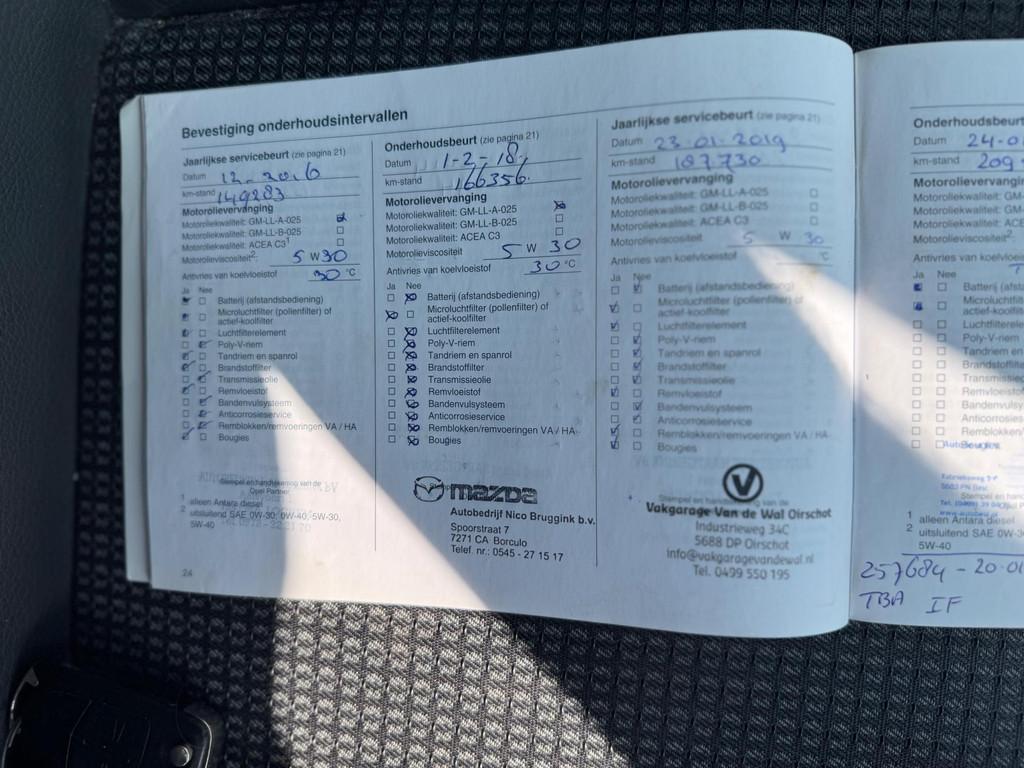 Bevestiging onderhoudsintervallen
Jaarlijkse servicebeurt (zie pagina 21)
Datum 12-2016
km-stand 149283
Motorolievervanging
Motoroliekwaliteit: GM-LL-A-025
Motoroliekwaliteit: GM-LL-B-025
Motoroliekwaliteit: ACEA C3¹
Motorolieviscositeit²: 5 W 30
Antivries van koelvloeistof 30 °C
Ja Nee
Batterij (afstandsbediening)
Microluchtfilter (pollenfilter) of
actief-koolfilter
Luchtfilterelement
Poly-V-riem
Tandriem en spanrol
Brandstoffilter
Transmissieolie
Remvloeistof
Bandenvulsysteem
Anticorrosieservice
Remblokken/remvoeringen VA / HA
Bougies
Stempel en handtekening van de
Opel Partner
1 alleen Antara diesel
2 uitsluitend SAE 0W-30, 0W-40, 5W-30,
5W-40
24
Onderhoudsbeurt (zie pagina 21)
Datum 1-2-18,
km-stand 166356.
Motorolievervanging
Motoroliekwaliteit: GM-LL-A-025
Motoroliekwaliteit: GM-LL-B-025
Motoroliekwaliteit: ACEA C3
Motorolieviscositeit 5 W 30
Antivries van koelvloeistof 30 °C
Ja Nee
Batterij (afstandsbediening)
Microluchtfilter (pollenfilter) of
actief-koolfilter
Luchtfilterelement
Poly-V-riem
Tandriem en spanrol
Brandstoffilter
Transmissieolie
Remvloeistof
Bandenvulsysteem
Anticorrosieservice
Remblokken/remvoeringen VA / HA
Bougies
mazda
Autobedrijf Nico Bruggink b.v.
Spoorstraat 7
7271 CA Borculo
Telef. nr.: 0545 - 27 15 17
Jaarlijkse servicebeurt (zie pagina 21)
Datum 23-01-2019
km-stand 187730
Motorolievervanging
Motoroliekwaliteit: GM-LL-A-025
Motoroliekwaliteit: GM-LL-B-025
Motoroliekwaliteit: ACEA C3
Motorolieviscositeit 5 W 30
Antivries van koelvloeistof °C
Ja Nee
Batterij (afstandsbediening)
Microluchtfilter (pollenfilter) of
actief-koolfilter
Luchtfilterelement
Poly-V-riem
Tandriem en spanrol
Brandstoffilter
Transmissieolie
Remvloeistof
Bandenvulsysteem
Anticorrosieservice
Remblokken/remvoeringen VA / HA
Bougies
V
Stempel en handtekening van de
Vakgarage Van de Wal Oirschot
Industrieweg 34C
5688 DP Oirschot
info@vakgaragevandewal.nl
Tel. 0499 550 195
Onderhoudsbeurt
Datum 24-0
km-stand 209
Motorolievervanging
Motoroliekwaliteit: GM-
Motoroliekwaliteit: GM-
Motoroliekwaliteit: ACE
Motorolieviscositeit²:
Antivries van koelvloeis
Ja Nee
Batterij (afst
Microluchtfilt
actief-koolfilt
Luchtfilterele
Poly-V-riem
Tandriem en
Brandstoffilt
Transmissie
Remvloeisto
Bandenvulsy
Anticorrosies
Remblokken/
Bougies
Stempel en han
1 alleen Antara diesel
2 uitsluitend SAE 0W-3
5W-40
257684 - 20-01
TBA IF